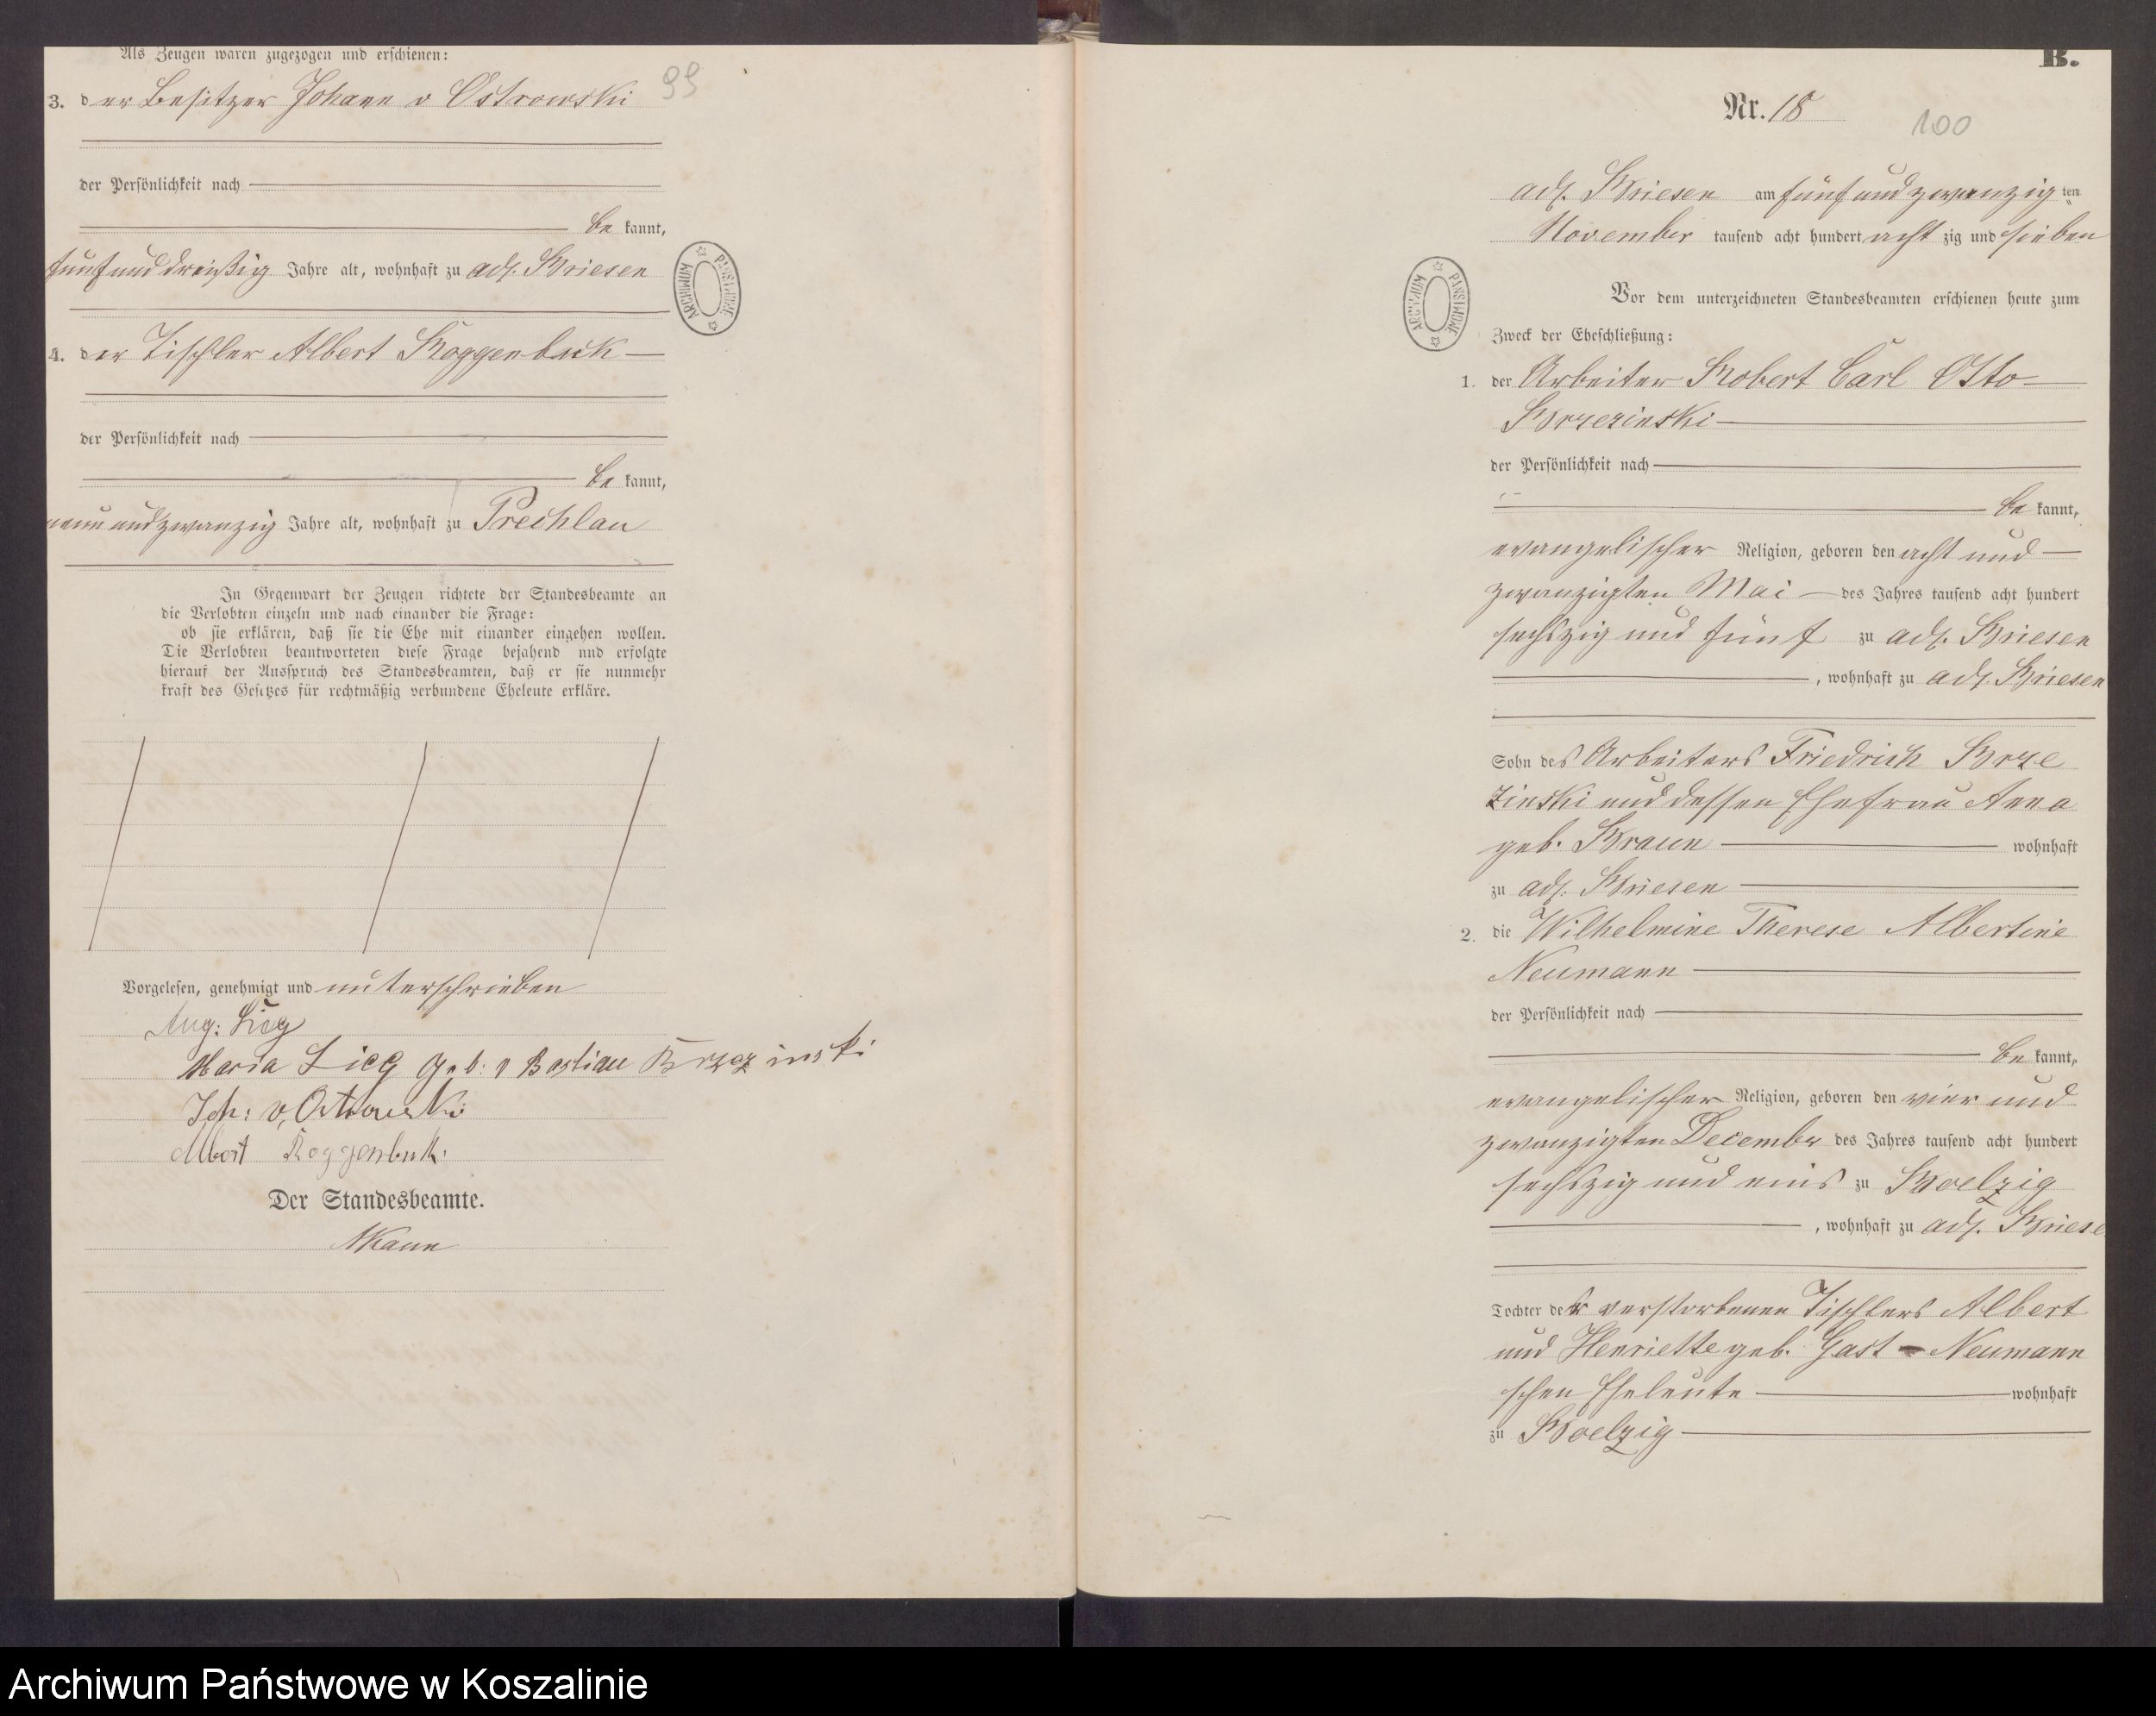 Als Zeugen waren zugezogen und erschienen:
99
3. der Besitzer Johann v Ostrowski
der Persönlichkeit nach
be kannt,
fünfunddreißig Jahre alt, wohnhaft zu adl. Briesen
4. der Tischler Albert Roggenbuck
der Persönlichkeit nach
be kannt,
neunundzwanzig Jahre alt, wohnhaft zu Prechlau
In Gegenwart der Zeugen richtete der Standesbeamte an
die Verlobten einzeln und nach einander die Frage:
ob sie erklären, daß sie die Ehe mit einander eingehen wollen.
Die Verlobten beantworteten diese Frage bejahend und erfolgte
hierauf der Ausspruch des Standesbeamten, daß er sie nunmehr
kraft des Gesetzes für rechtmäßig verbundene Eheleute erkläre.
Vorgelesen, genehmigt und unterschrieben
Aug: Lieg
Maria Lieg geb: v Bastian Brzezinski
Joh: v. Ostrowski
Albert Roggenbuk.
Der Standesbeamte.
ARCHIWUM PAŃSTWOWE
B.
Nr. 18
100
adl. Briesen am fünfundzwanzig ten
November tausend acht hundert acht zig und sieben
Vor dem unterzeichneten Standesbeamten erschienen heute zum
Zweck der Eheschließung:
ARCHIWUM PAŃSTWOWE
1. der Arbeiter Robert Carl Otto
Brzezinski
der Persönlichkeit nach
be kannt,
evangelischer Religion, geboren den acht und
zwanzigsten Mai des Jahres tausend acht hundert
sechszig und fünf zu adl. Briesen
, wohnhaft zu adl. Briesen
Sohn des Arbeiters Friedrich Brze
zinski und dessen Ehefrau Anna
geb. Braun wohnhaft
zu adl. Briesen
2. die Wilhelmine Therese Albertine
Neumann
der Persönlichkeit nach
be kannt,
evangelischer Religion, geboren den vier und
zwanzigsten Decembr des Jahres tausend acht hundert
sechszig und eins zu Woelzig
, wohnhaft zu adl. Briese
Tochter der verstorbenen Tischlers Albert
und Henriette geb. Gast - Neumann
schen Eheleute wohnhaft
zu Woelzig
Archiwum Państwowe w Koszalinie